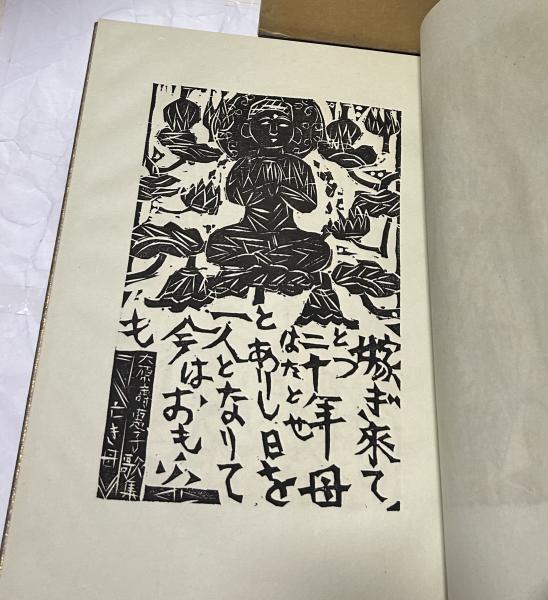 嫁ぎ来て
とつ
二十年母
はたとせ
とありし日を
一人となりて
今は、おもふ
も
大原壽恵子歌集
亡き母